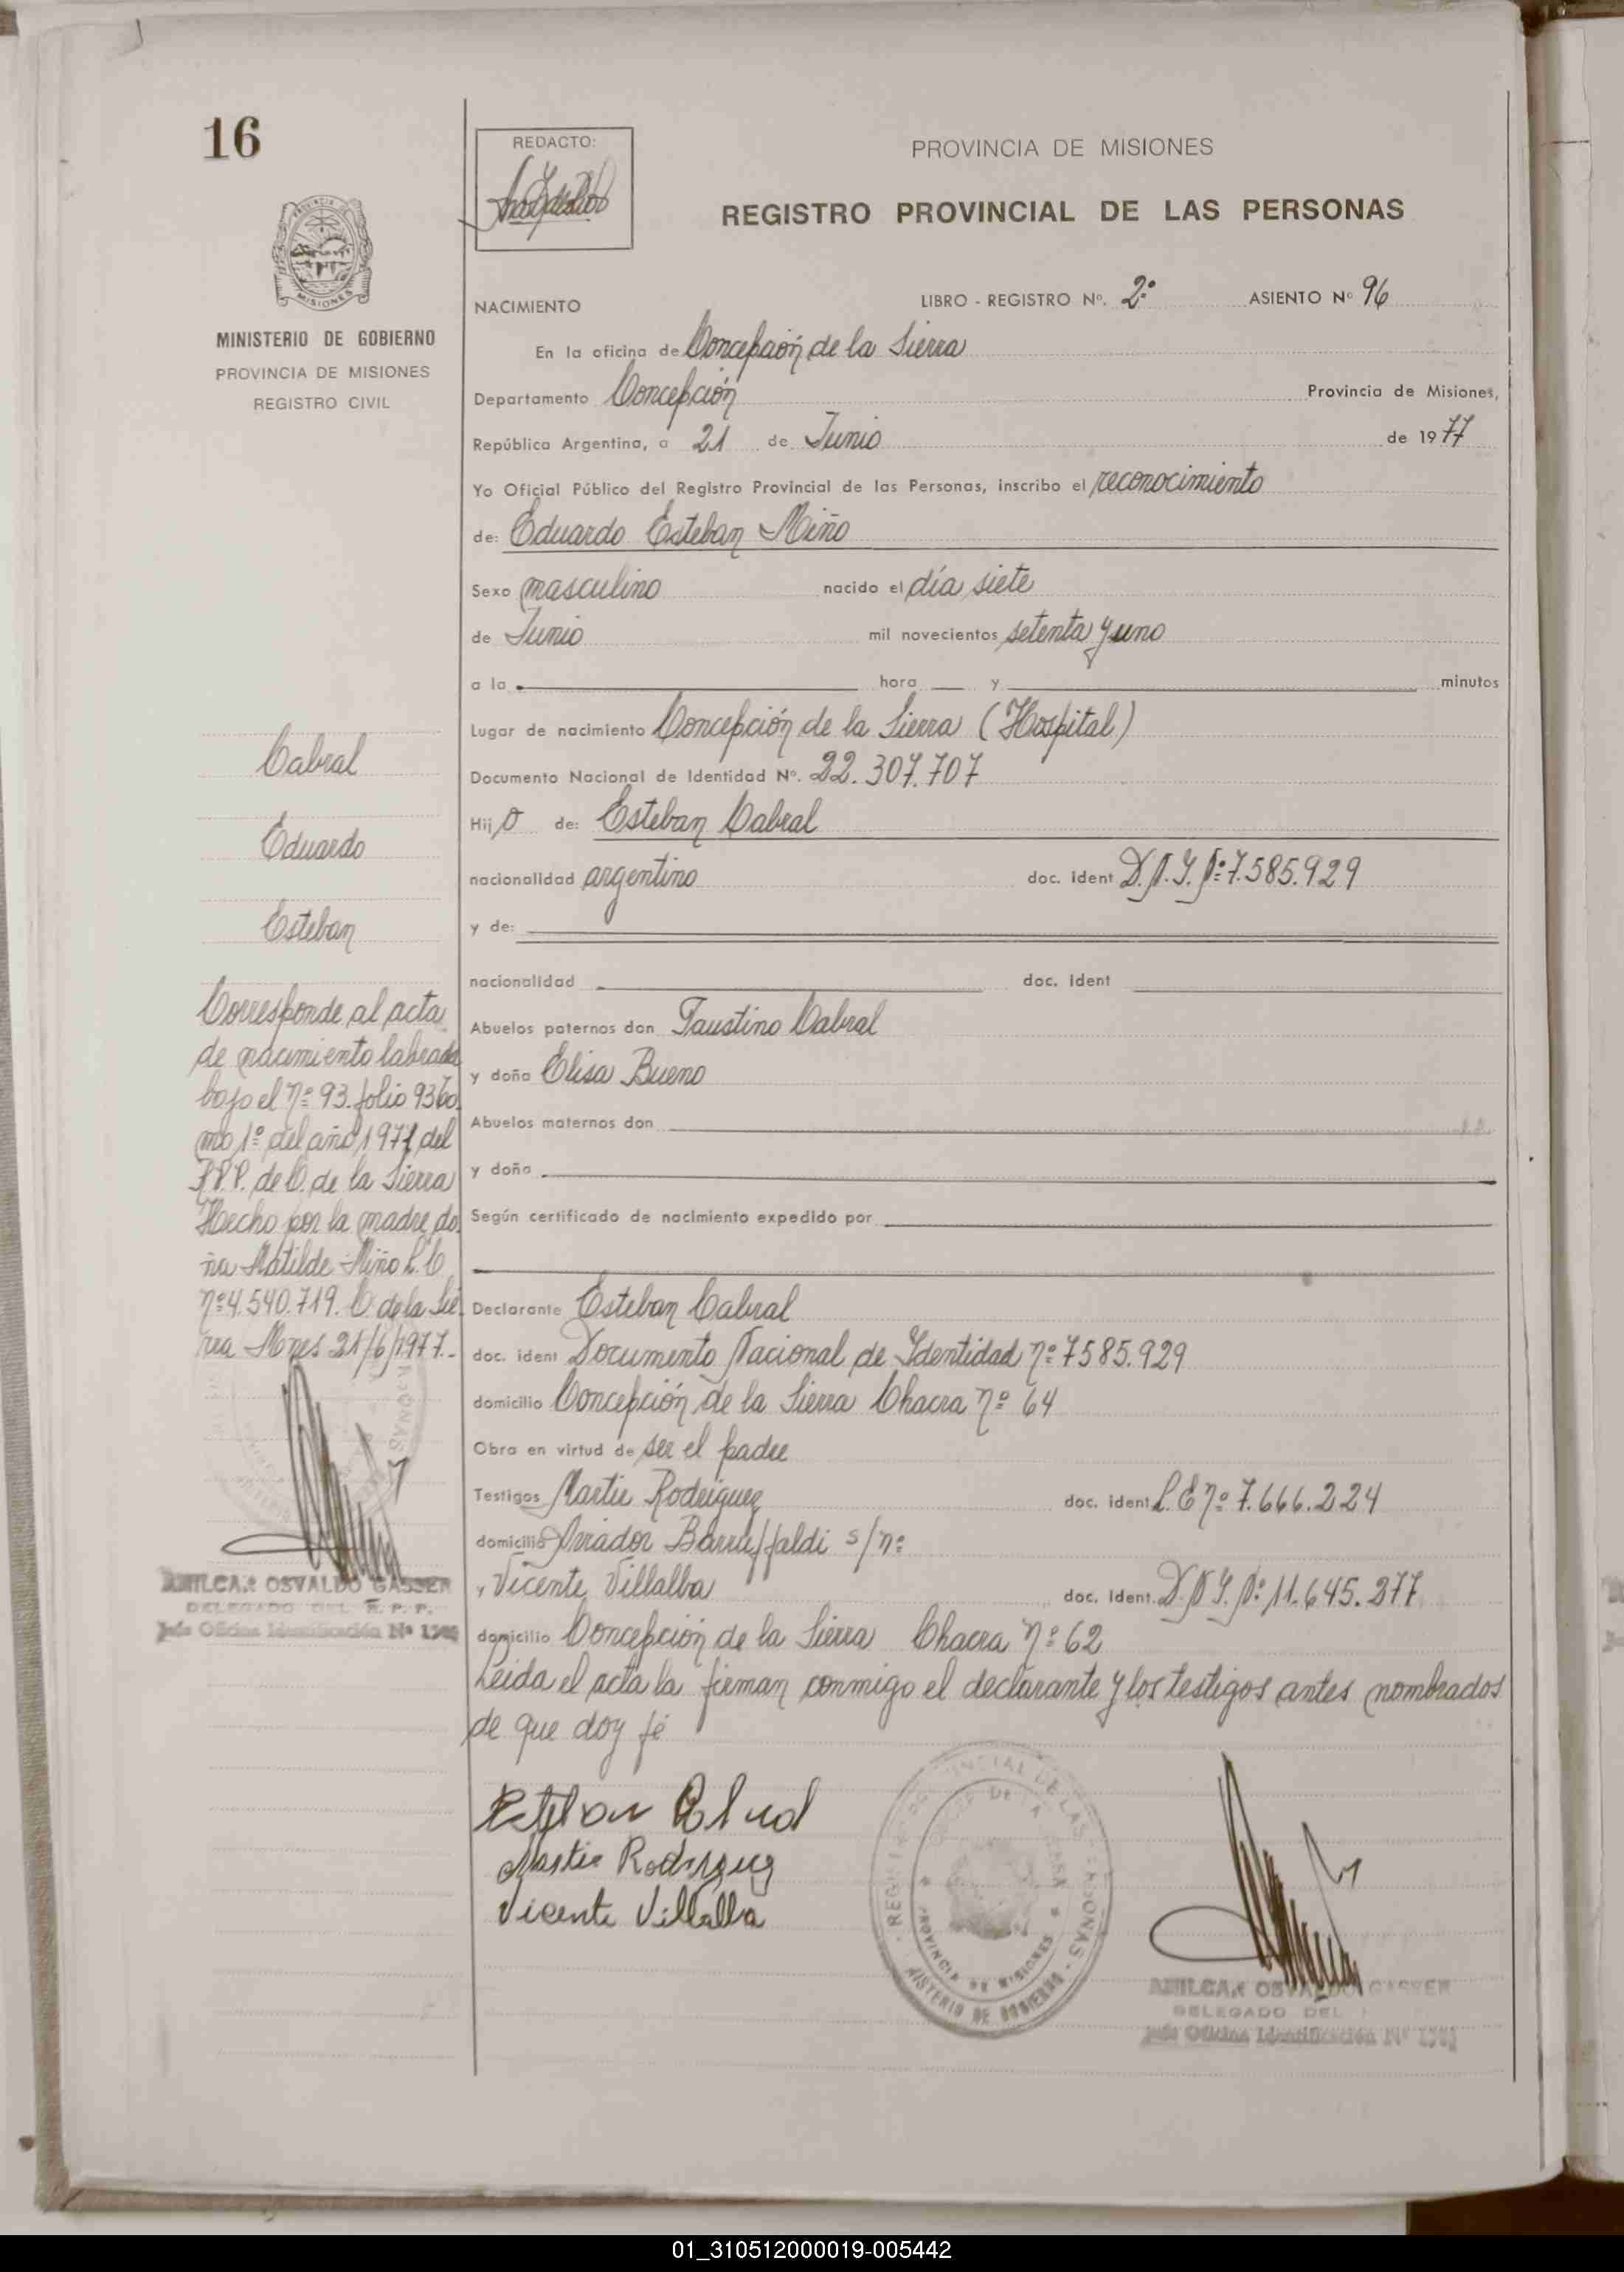 16
REDACTO:
PROVINCIA DE MISIONES
REGISTRO PROVINCIAL DE LAS PERSONAS
MISIONES
MINISTERIO DE GOBIERNO
PROVINCIA DE MISIONES
REGISTRO CIVIL
NACIMIENTO LIBRO - REGISTRO Nº. 2º ASIENTO Nº 96
En la oficina de Concepción de la Sierra
Departamento Concepción Provincia de Misiones,
República Argentina, a 21 de Junio de 1977
Yo Oficial Público del Registro Provincial de las Personas, inscribo el reconocimiento
de: Eduardo Esteban Miño
Sexo masculino nacido el día siete
de Junio mil novecientos setenta y uno
a la hora y minutos
Lugar de nacimiento Concepción de la Sierra (Hospital)
Documento Nacional de Identidad Nº. 22.307.707
Hijo de: Esteban Cabral
nacionalidad argentino doc. ident D.N.I. Nº 7.585.929
y de:
nacionalidad doc. ident
Abuelos paternos don Faustino Cabral
y doña Elisa Bueno
Abuelos maternos don
y doña
Según certificado de nacimiento expedido por
Declarante Esteban Cabral
doc. ident Documento Nacional de Identidad nº 7585.929
domicilio Concepción de la Sierra Chacra nº 64
Obra en virtud de ser el padre
Testigos Martir Rodriguez doc. ident L.E nº 7.666.224
domicilio Amador Barruffaldi s/nº
y Vicente Villalba doc. ident. D.N.I. Nº 11.645.277
domicilio Concepción de la Sierra Chacra nº 62
Leida el acta la firman conmigo el declarante y los testigos antes nombrados
de que doy fé
Cabral
Eduardo
Esteban
Corresponde al acta
de nacimiento labrada
bajo el nº 93. folio 93 to
mo 1º del año 1971 del
R.P.P. de C. de la Sierra
Hecho por la madre do
ña Matilde Miño L.C
nº 4.540.719. C de la Sie
rra Mnes 21/6/1977.-
AMILCAR OSVALDO GASSER
DELEGADO DEL R. P. P.
Jefe Oficina Identificación Nº
Esteban Cabral
Martir Rodriguez
Vicente Villalba
REGISTRO PROVINCIAL DE LAS PERSONAS
PROVINCIA DE MISIONES
MINISTERIO DE GOBIERNO
AMILCAR OSVALDO GASSER
DELEGADO DEL
Jefe Oficina Identificación Nº
01_310512000019-005442